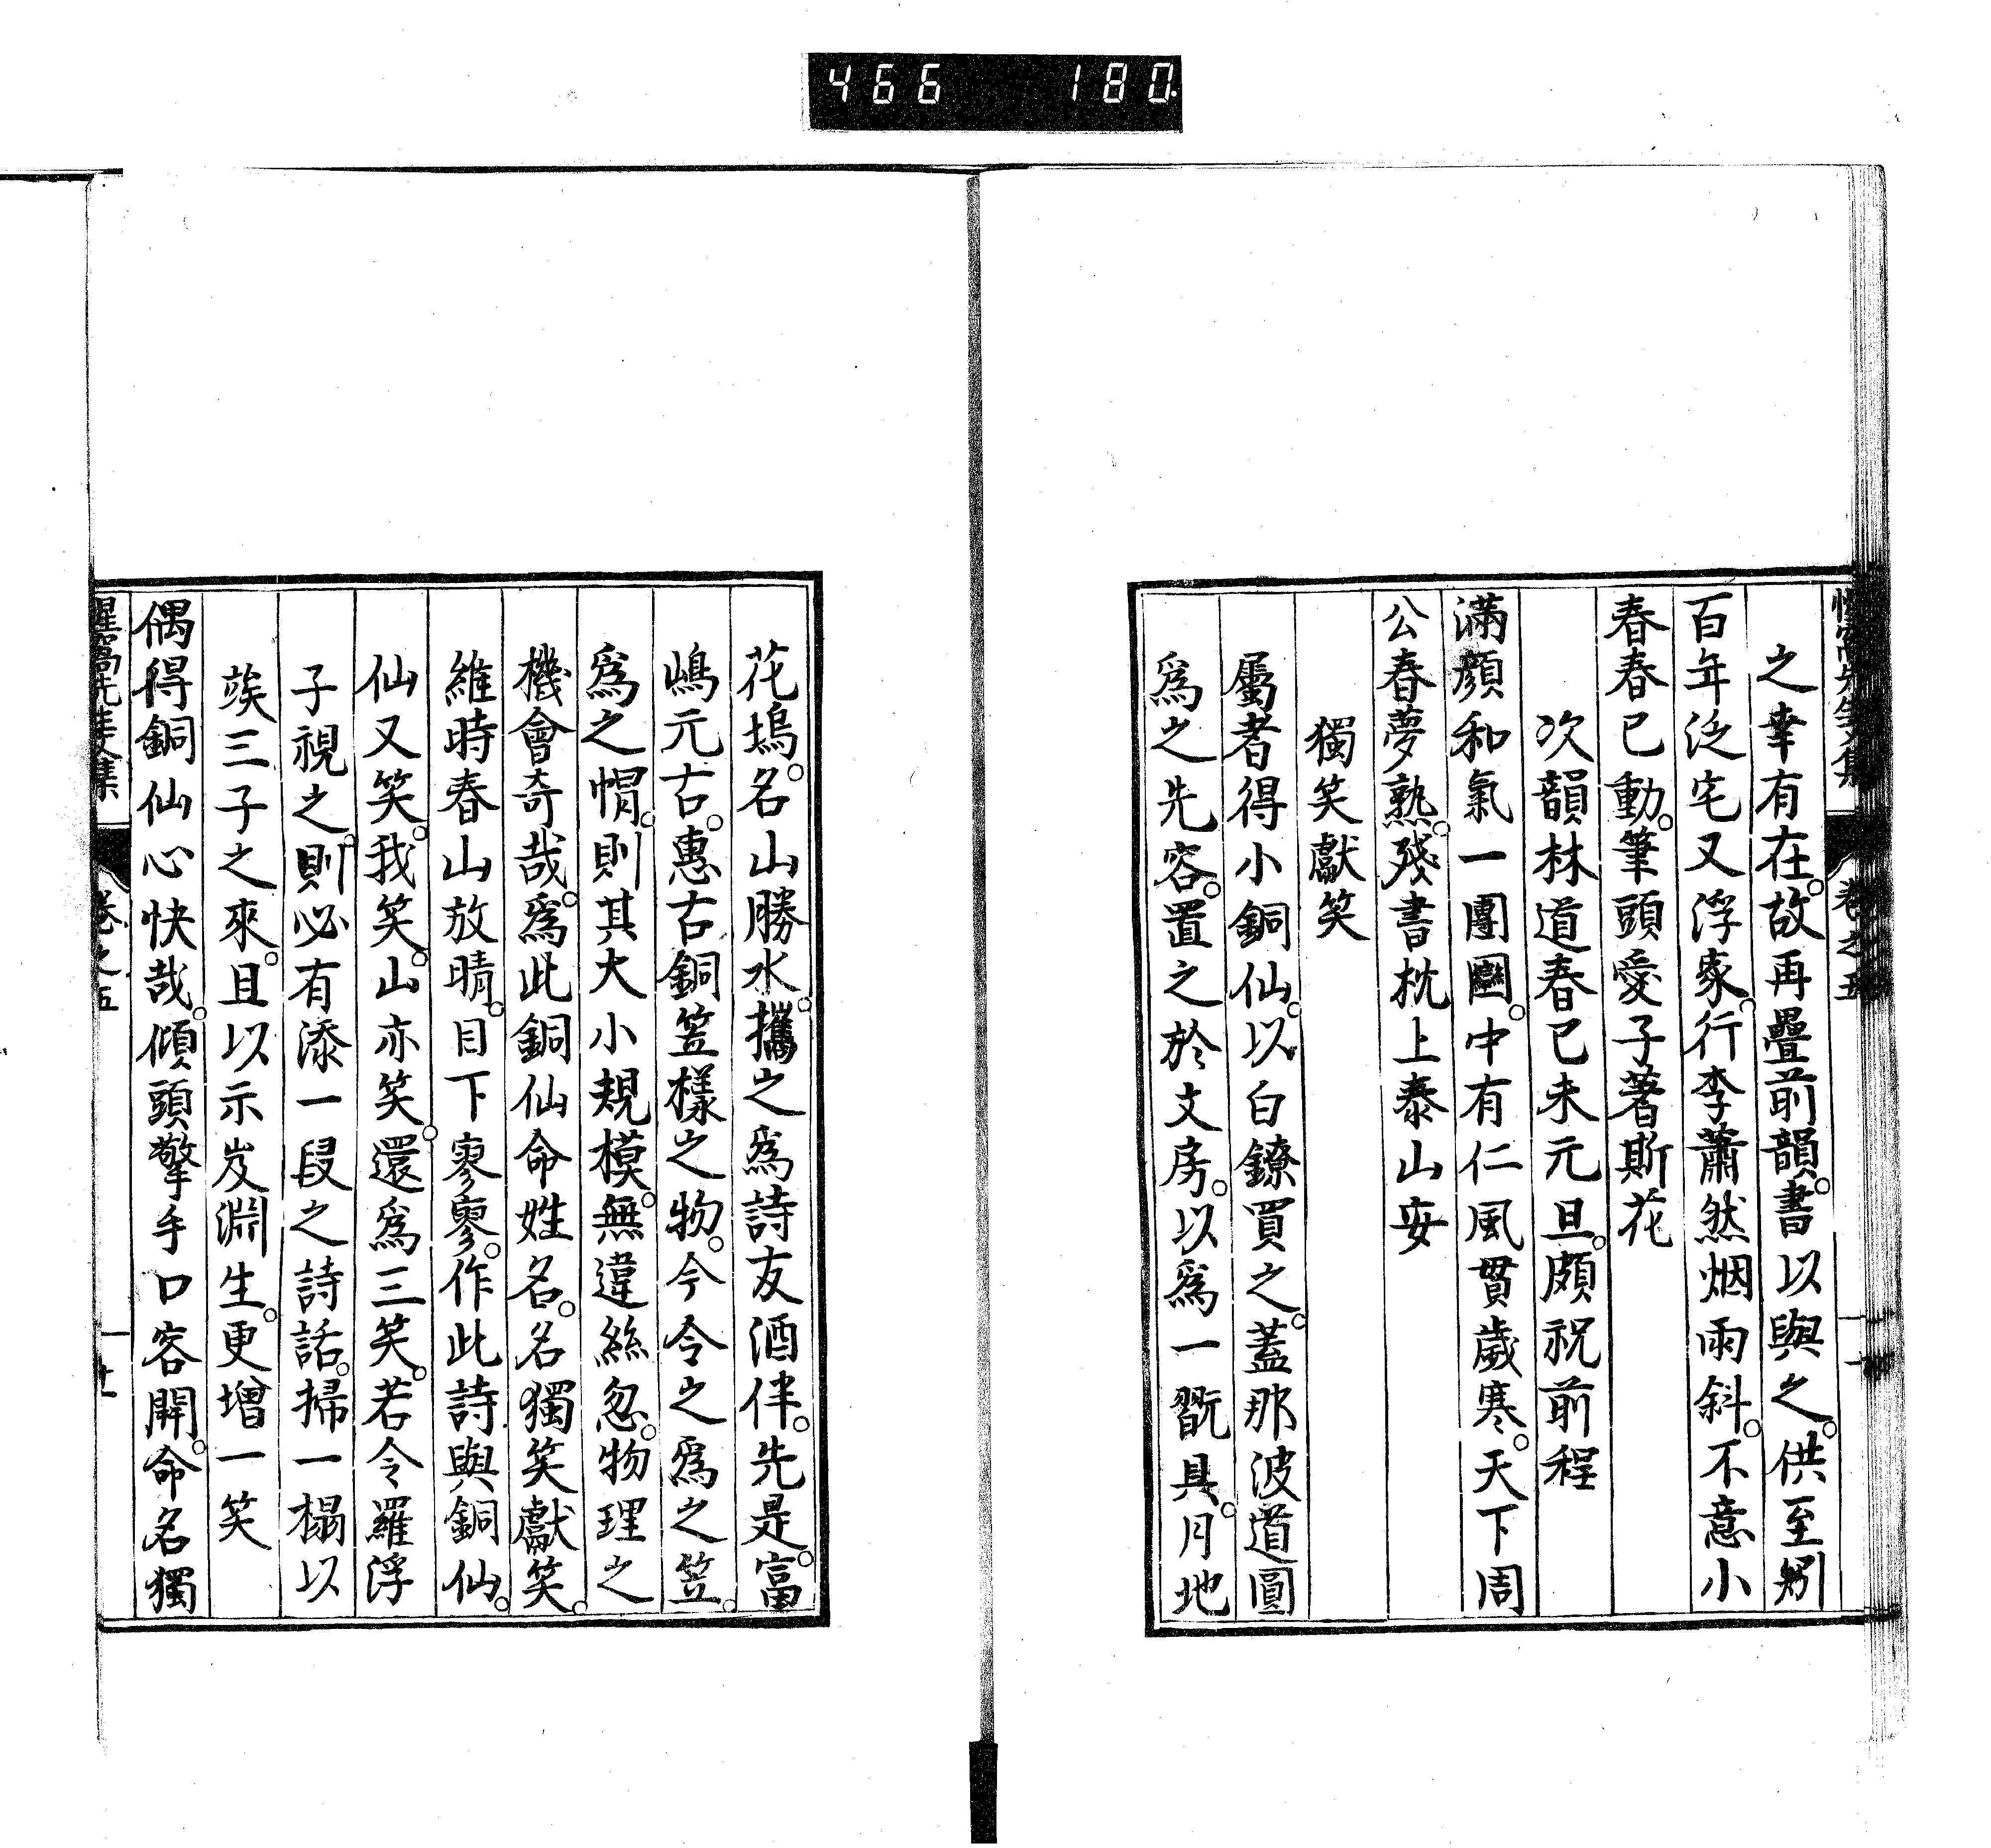 466 180
惺窩先生文集 卷之五
之幸有在。故再疊前韻。書以與之。供至躬
百年泛宅又浮家。行李蕭然烟雨斜。不意小
春春已動。筆頭愛子著斯花
次韻林道春己未元旦。頗祝前程
滿顏和氣一團圝。中有仁風貫歲寒。天下周
公春夢熟。殘書枕上泰山安
獨笑獻笑
屬者得小銅仙。以白鐐買之。蓋那波道圓
爲之先容。置之於文房。以爲一翫具。月地
花塢。名山勝水。攜之爲詩友酒伴。先是。富
嶋元古。惠古銅笠樣之物。今令之爲之笠。
爲之帽。則其大小規模。無違絲忽。物理之
機會奇哉。爲此銅仙命姓名。名獨笑獻笑。
維時春山放晴。目下寥寥。作此詩與銅仙。
仙又笑。我笑。山亦笑。還爲三笑。若令羅浮
子視之。則必有添一段之詩話。掃一榻以
竢三子之來。且以示岌淵生。更增一笑
偶得銅仙心快哉。傾頭擎手口容開。命名獨
惺窩先生文集 卷之五